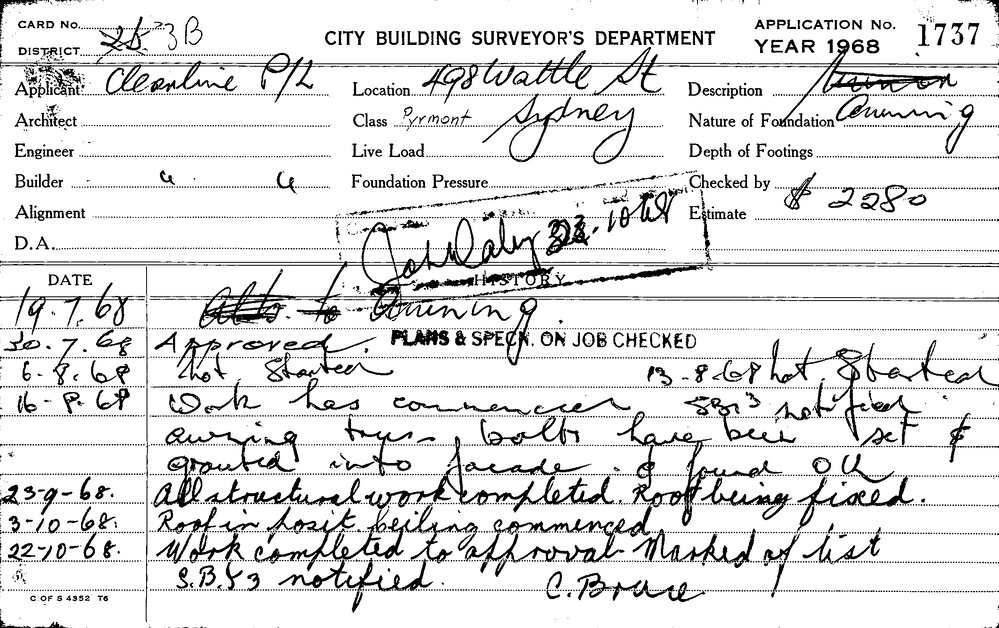 CARD No. 3B
DISTRICT
CITY BUILDING SURVEYOR'S DEPARTMENT
APPLICATION No. 1737
YEAR 1968
Applicant Cleanline P/L
Location 498 Wattle St
Description
Architect
Class Pyrmont Sydney
Nature of Foundation Awning
Engineer
Live Load
Depth of Footings
Builder " "
Foundation Pressure
Checked by
Alignment
Estimate $ 2280
D.A.
John Daley 23.10.68
DATE
HISTORY
19.7.68 Alts. to Awning.
30.7.68 Approved. PLANS & SPECN. ON JOB CHECKED
6-8-68 Not Started 13-8-68 Not Started
16-8-68 Work has commenced SBS3 notified
awning truss bolts have been set &
grouted into facade. & found OK
23-9-68. All structural work completed. Roof being fixed.
3-10-68. Roof in posit. Ceiling commenced
22-10-68. Work completed to approval. Marked of list
S.B.S3 notified. C. Bruce
C OF S 4352 T6